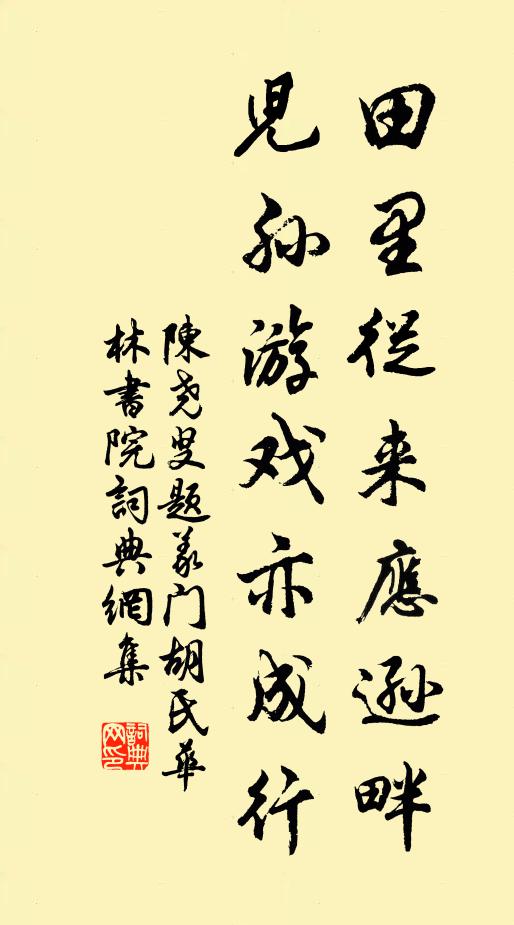 田里從来應遜畔
兒孙游戏亦成行
陳尧叟题義门胡氏華
林書院詞典網集
詞典网印